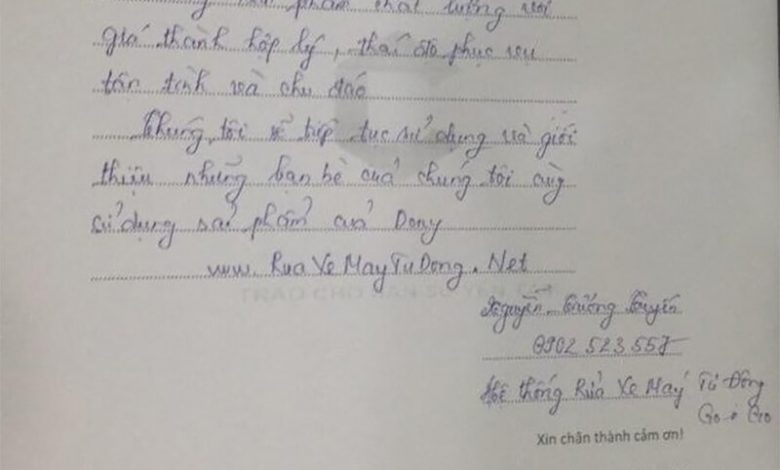 phẩm chất lượng với
giá thành hợp lý, thái độ phục vụ
tận tình và chu đáo
Chúng tôi sẽ tiếp tục sử dụng và giới
thiệu những bạn bè của chúng tôi cùng
sử dụng sản phẩm của Dony
www.RuaXeMayTuDong.Net
Nguyễn Trường Luyến
0902 523 557
Hệ thống Rửa Xe Máy Tự Động
Go & Go
Xin chân thành cảm ơn!